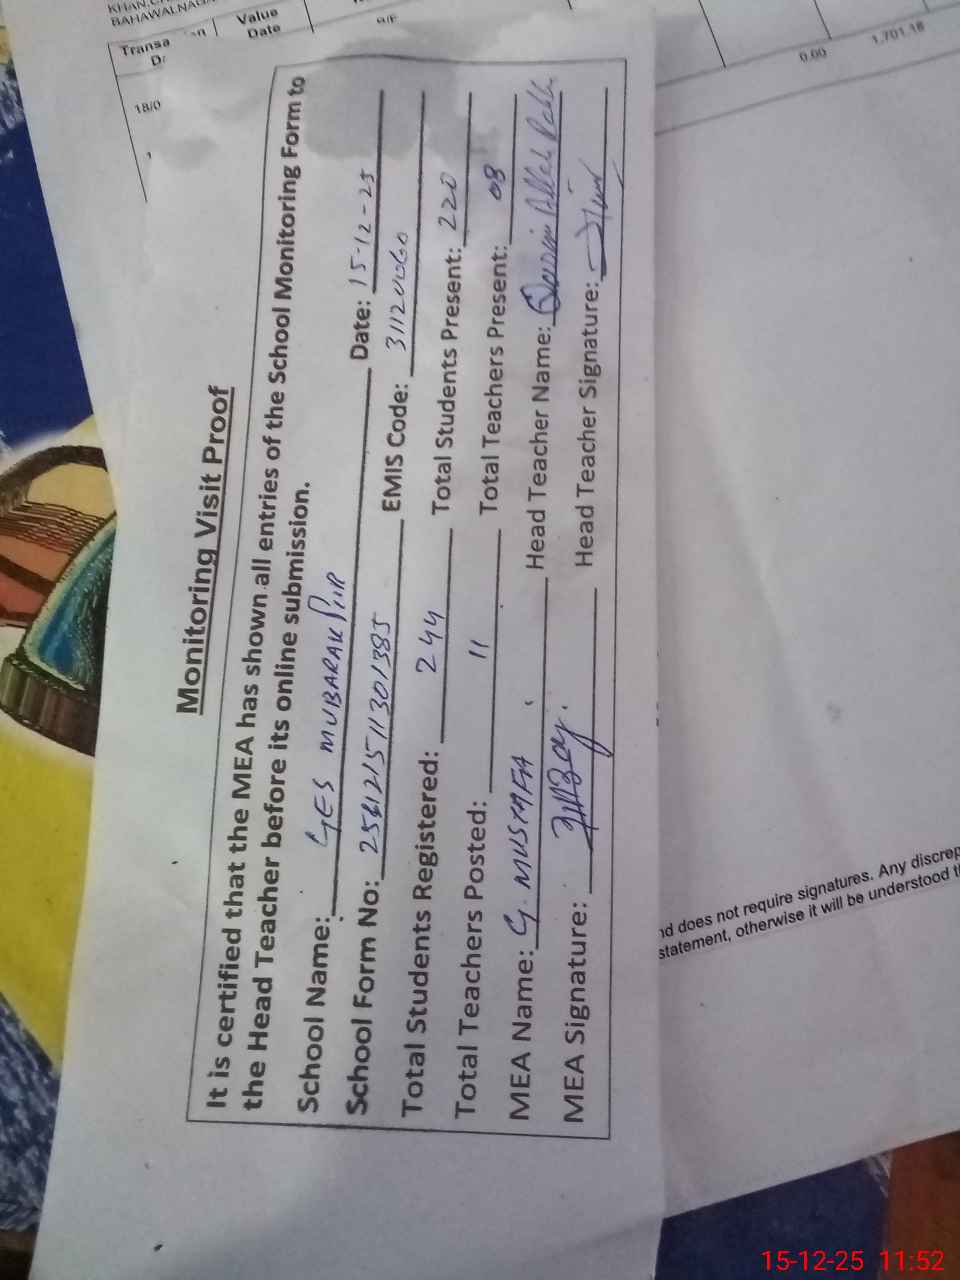 KHAN,
BAHAWALNAGA
Transa
Value
Date
18/0
0.00 1,701.16
Monitoring Visit Proof
It is certified that the MEA has shown all entries of the School Monitoring Form to
the Head Teacher before its online submission.
School Name: GES MUBARAK PUR Date: 15-12-25
School Form No: 256121511301385 EMIS Code: 31120060
Total Students Registered: 244 Total Students Present: 220
Total Teachers Posted: 11 Total Teachers Present: 08
MEA Name: G. MUSTAFA Head Teacher Name:
MEA Signature: Head Teacher Signature:
nd does not require signatures. Any discrep
statement, otherwise it will be understood t
15-12-25 11:52